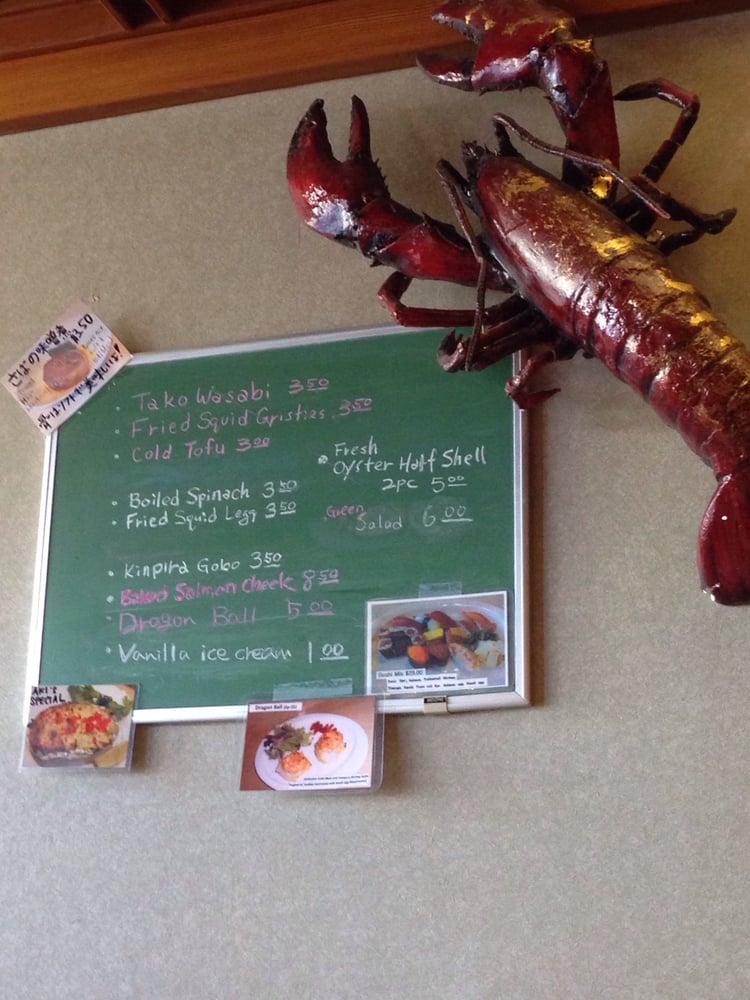 さばの味噌煮
$3.50
Tako Wasabi 3 50
Fried Squid Gristles 3 50
Cold Tofu 3 00
Boiled Spinach 3 50
Fried Squid Legg 3 50
Kinpira Gobo 3 50
Baked Salmon Cheek 8 50
Dragon Ball 5 00
Vanilla ice cream 1 00
Fresh
Oyster Half Shell
2pc 5 00
Green
Salad 6 00
Sushi Mix $25.00
AKI'S
SPECIAL
Dragon Ball